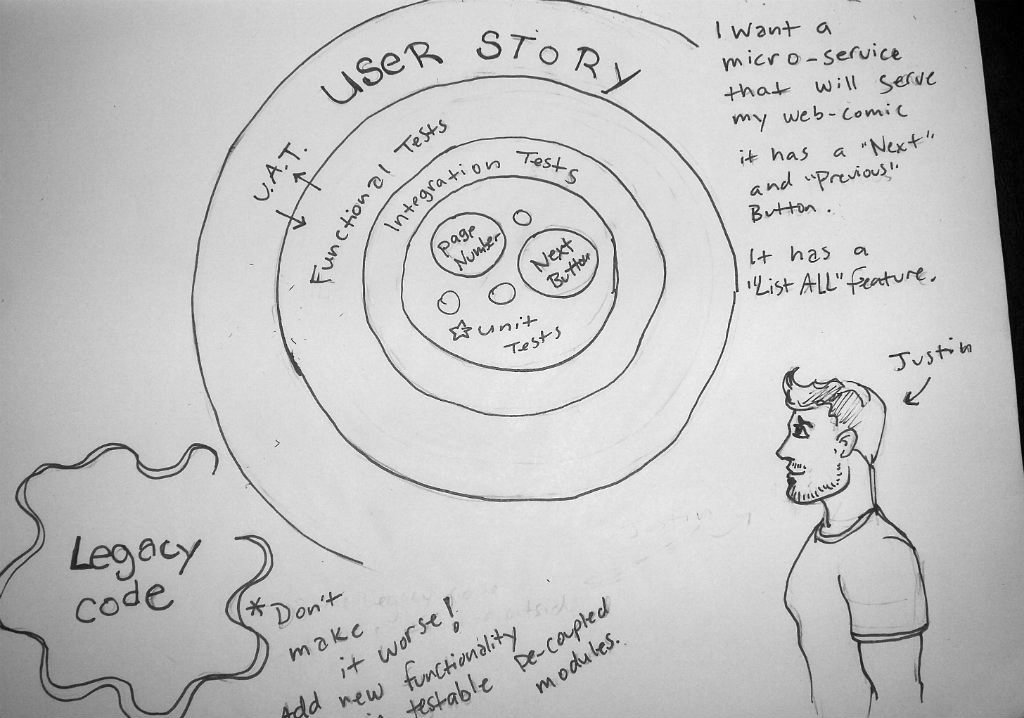 USER STORY
U.A.T.
Functional Tests
Integration Tests
Page
Number
Next
Button
☆ Unit
Tests
I want a
micro-service
that will serve
my web-comic
it has a "Next"
and "Previous"
Button.
It has a
"List ALL" feature.
Justin
Legacy
code
* Don't
make
it worse!
Add new functionality
testable De-coupled
modules.